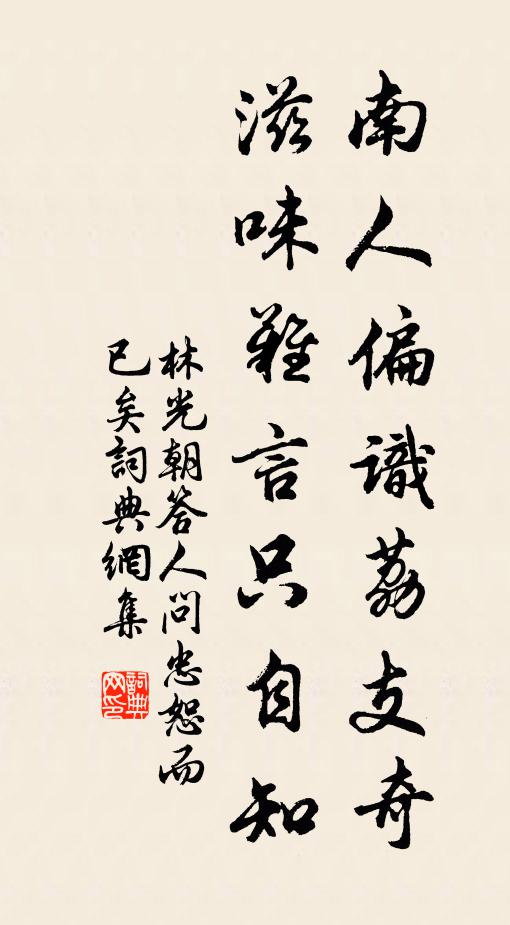 南人偏識荔支奇
滋味難言只自知
林光朝答人問忠恕而
已矣詞典網集
詞典網印